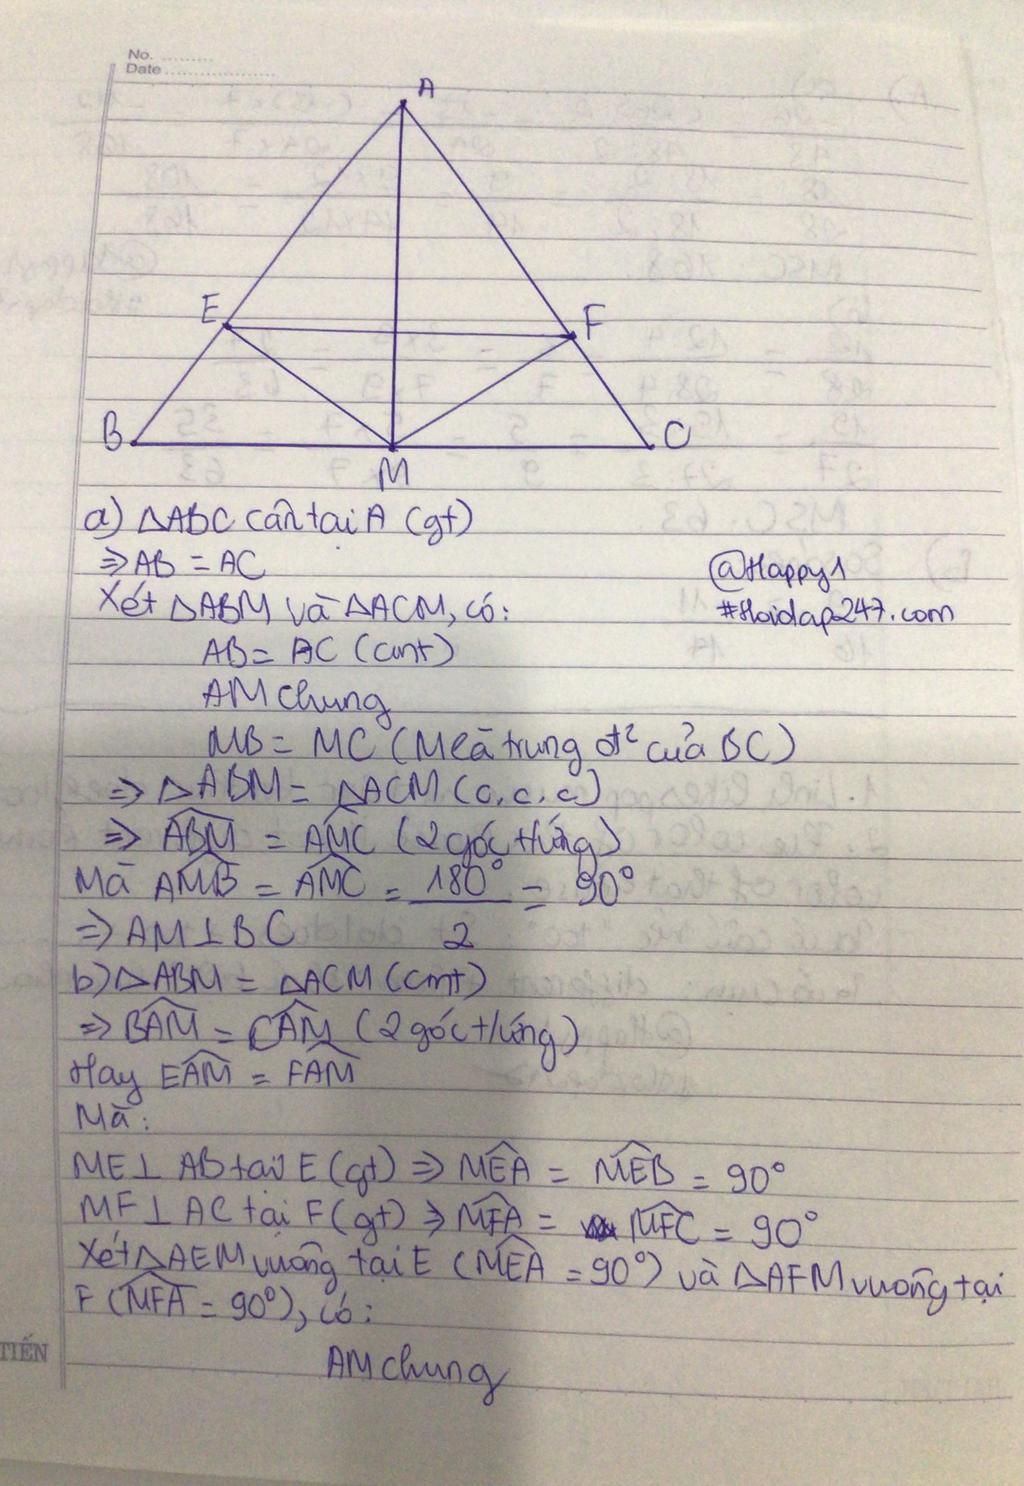 No. ..........
Date ......................
A
E
F
B
C
M
a) △ABC cân tại A (gt)
⇒ AB = AC
@Happy1
Xét △ABM và △ACM, có:
#Hoidap247.com
AB = AC (cmt)
AM chung
MB = MC (M là trung đ² của BC)
⇒ △ABM = △ACM (c.c.c)
⇒ ABM̂ = AMĈ (2 góc t/ứng)
Mà AMB̂ = AMĈ = 180°/2 = 90°
⇒ AM ⊥ BC
b) △ABM = △ACM (cmt)
⇒ BAM̂ = CAM̂ (2 góc t/ứng)
Hay EAM̂ = FAM̂
Mà:
ME ⊥ AB tại E (gt) ⇒ MEÂ = MEB̂ = 90°
MF ⊥ AC tại F (gt) ⇒ MFÂ = MFĈ = 90°
Xét △AEM vuông tại E (MEÂ = 90°) và △AFM vuông tại
F (MFÂ = 90°), có:
TIẾN
AM chung